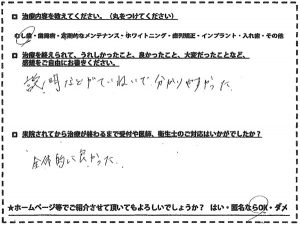 ■ 治療内容を教えてください。（丸をつけてください）
むし歯・歯周病・定期的なメンテナンス・ホワイトニング・歯列矯正・インプラント・入れ歯・その他
■ 治療を終えられて、うれしかったこと、良かったこと、大変だったことなど、
感想をご自由にお書きください。
説明などがていねいで分かりやすかった。
■ 来院されてから治療が終わるまで受付や医師、衛生士のご対応はいかがでしたか？
全体的に良かった。
★ホームページ等でご紹介させて頂いてもよろしいでしょうか？ はい・匿名ならOK・ダメ